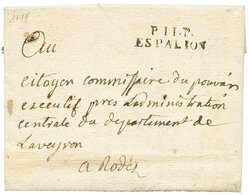 1798
P.11.P.
ESPALION
Au
Citoyen Commissaire du pouvoir
executif pres Ladministration
centrale du departement de
Laveyron
a Rodéz